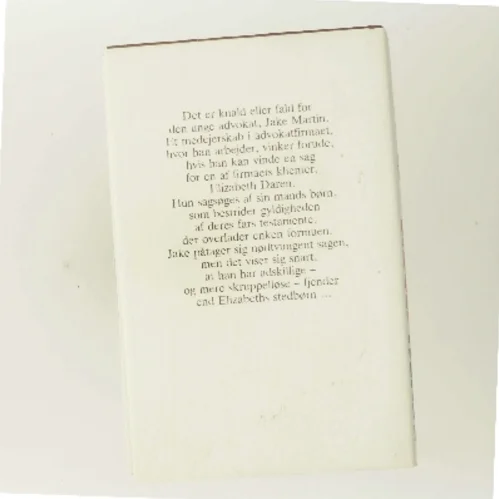 Det er knald eller fald for
den unge advokat, Jake Martin.
Et medejerskab i advokatfirmaet,
hvor han arbejder, vinker forude,
hvis han kan vinde en sag
for en af firmaets klienter,
Elizabeth Dazen.
Hun sagsøges af sin mands børn,
som bestrider gyldigheden
af deres fars testamente,
der overlader enken formuen.
Jake påtager sig nødtvungent sagen,
men det viser sig snart,
at han har adskillige –
og mere skruppelløse – fjender
end Elizabeths stedbørn ...